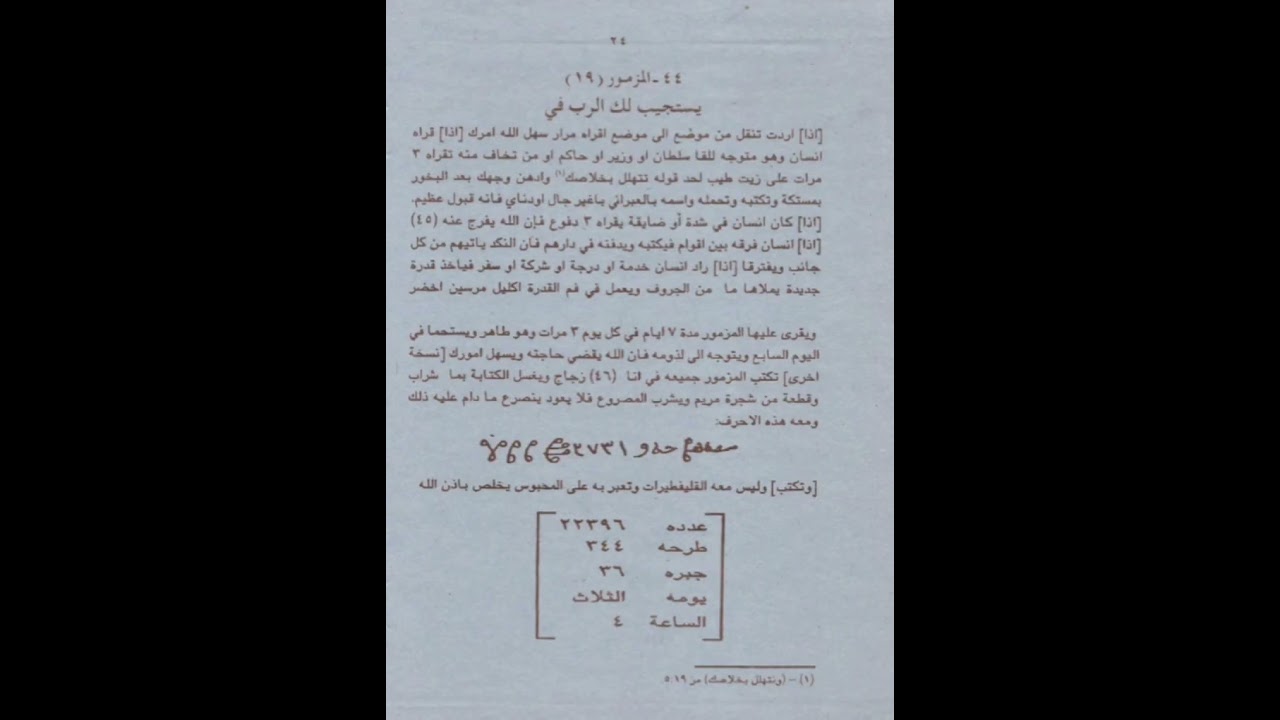 ٢٤
٤٤ - المزمور (١٩)
يستجيب لك الرب في
[اذا] اردت تنقل من موضع الى موضع اقراه مرار سهل الله امرك [اذا] قراه
انسان وهو متوجه للقا سلطان او وزير او حاكم او من تخاف منه تقراه ٣
مرات على زيت طيب لحد قوله تتهلل بخلاصك(١) وادهن وجهك بعد البخور
بمستكة وتكتبه وتحمله واسمه بالعبراني باغير جال اودناي فانه قبول عظيم.
[اذا] كان انسان في شدة أو ضايقة يقراه ٣ دفوع فإن الله يفرج عنه (٤٥)
[اذا] انسان فرقه بين اقوام فيكتبه ويدفنه في دارهم فان النكد ياتيهم من كل
جانب ويفترقا [اذا] راد انسان خدمة او درجة او شركة او سفر فياخذ قدرة
جديدة يملاها ما من الجروف ويعمل في فم القدرة اكليل مرسين اخضر
ويقرى عليها المزمور مدة ٧ ايام في كل يوم ٣ مرات وهو طاهر ويستحما في
اليوم السابع ويتوجه الى لذومه فان الله يقضي حاجته ويسهل امورك [نسخة
اخرى] تكتب المزمور جميعه في انا (٤٦) زجاج ويغسل الكتابة بما شراب
وقطعة من شجرة مريم ويشرب المصروع فلا يعود ينصرع ما دام عليه ذلك
ومعه هذه الاحرف:
[وتكتب] وليس معه القليفطيرات وتعبر به على المحبوس يخلص باذن الله
عدده ٢٢٣٩٦
طرحه ٣٤٤
جبره ٣٦
يومه الثلاث
الساعة ٤
(١) – (ونتهلل بخلاصك) مز ١٩:٥